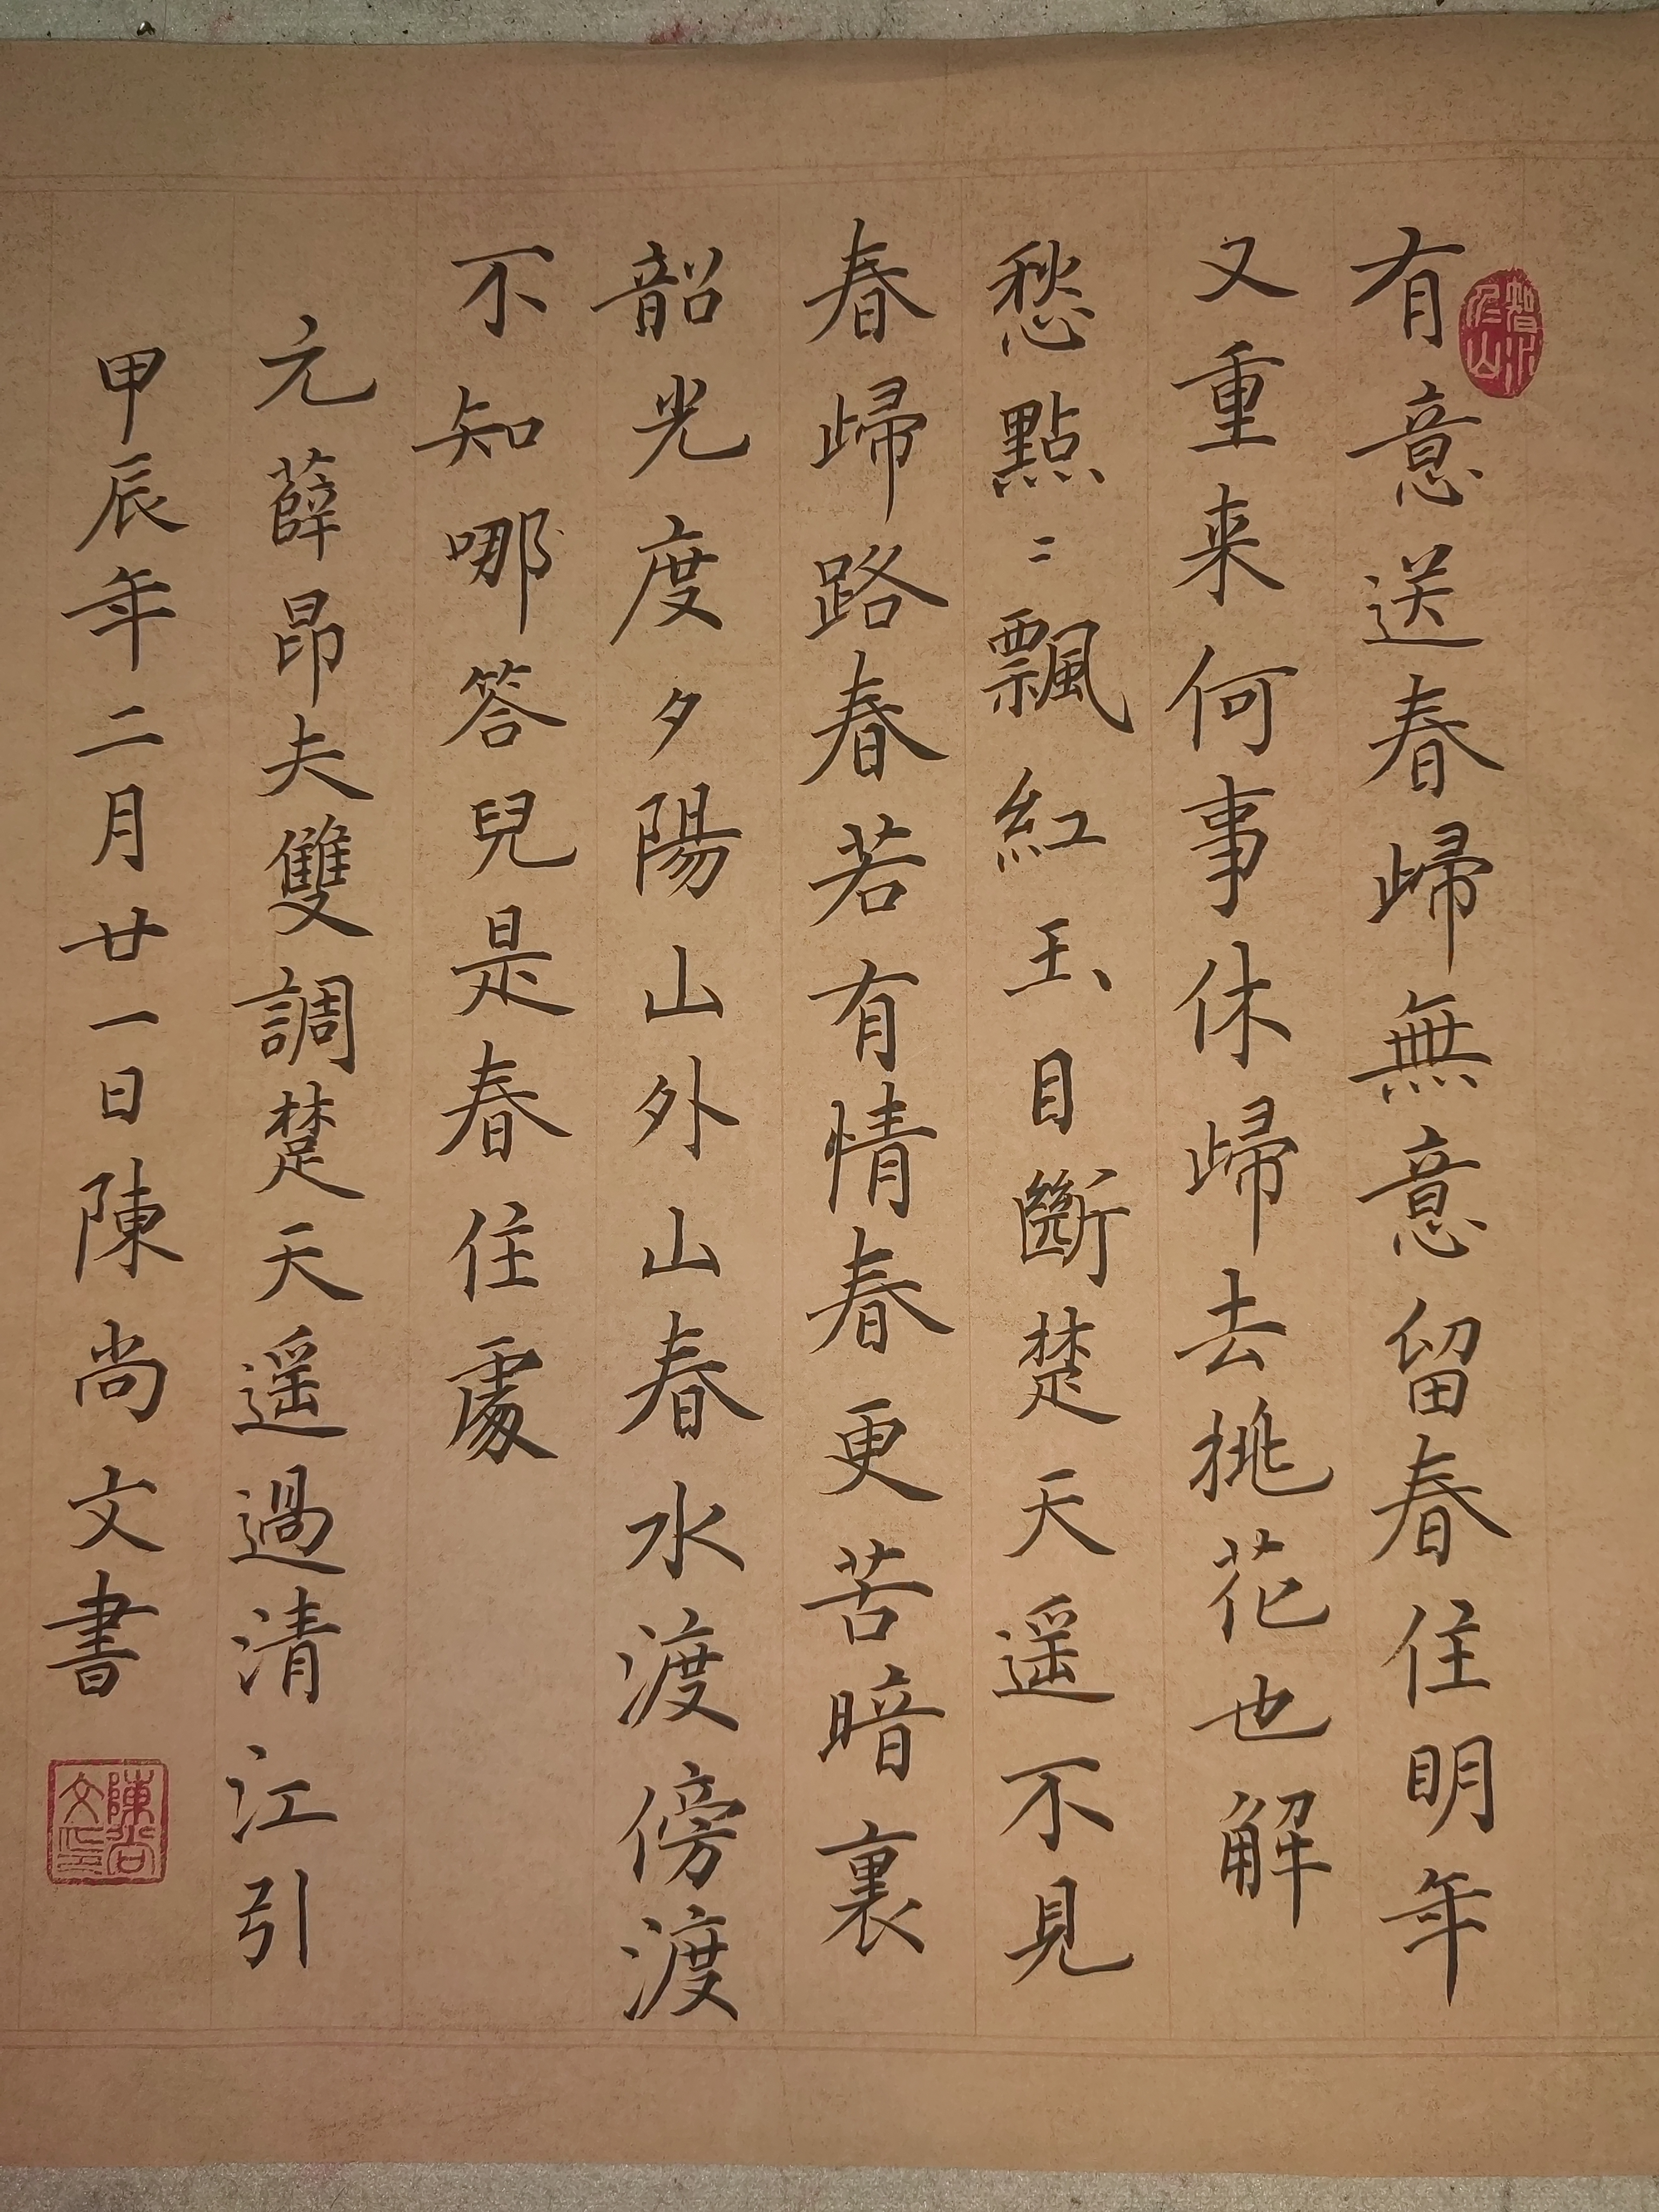 有意送春歸無意留春住明年
又重来何事休歸去桃花也解
愁點〻飄紅玉目斷楚天遥不見
春歸路春若有情春更苦暗裏
韶光度夕陽山外山春水渡傍渡
不知哪答兒是春住處
元薛昂夫雙調楚天遥過清江引
甲辰年二月廿一日陳尚文書
智水仁山
陳尚文印